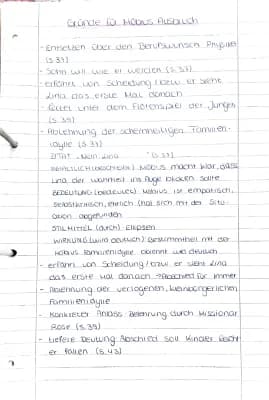 Gründe für Möbius Ausbruch
- Entsetzen über den Berufswunsch Physiker
(S.37)
- Sohn will wie er werden (S.37)
- erfährt von Scheidung / bzw. er sieht
Lina das erste Mal danach
- unter dem Flötenspiel der Jungen
(S.39)
- Ablehnung der scheinheiligen Familien-
idylle (S.37)
ZITAT: Nein, Lina (S.37)
Möbius macht klar, dass
Lina der Wahrheit ins Auge blicken sollte
BEDEUTUNG (bedeutet): Möbius ist empatisch,
selbstkritisch, ehrlich (hat sich mit der Situ-
ation abgefunden
STILMITTEL (durch): Ellipsen
WIRKUNG (wird deutlich) Bestimmtheit mit der
Möbius Familienidylle ablehnt wird deutlich
- erfährt von Scheidung / bzw. er sieht Lina
das erste Mal danach → Abschied für immer
- Ablehnung der verlogenen, kleinbürgerlichen
Familienidylle
- Konkreter Anlass: Belehrung durch Missionar
Rose (S.39)
- tiefere Deutung Abschied soll Kinder leicht
er fallen (S.43)